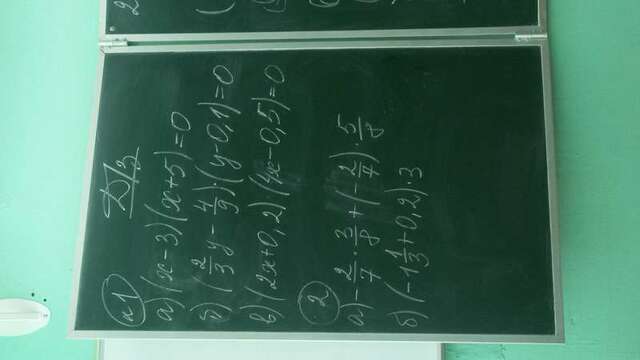 №1 Д/з
а) (x-3)(x+5)=0
б) (2/3 y - 4/9)·(y-0,1)=0
в) (2x+0,2)·(4x-0,5)=0
2
а) -2/7 · 3/8 + (-2/7) · 5/8
б) (-1 1/3 + 0,2)·3
2